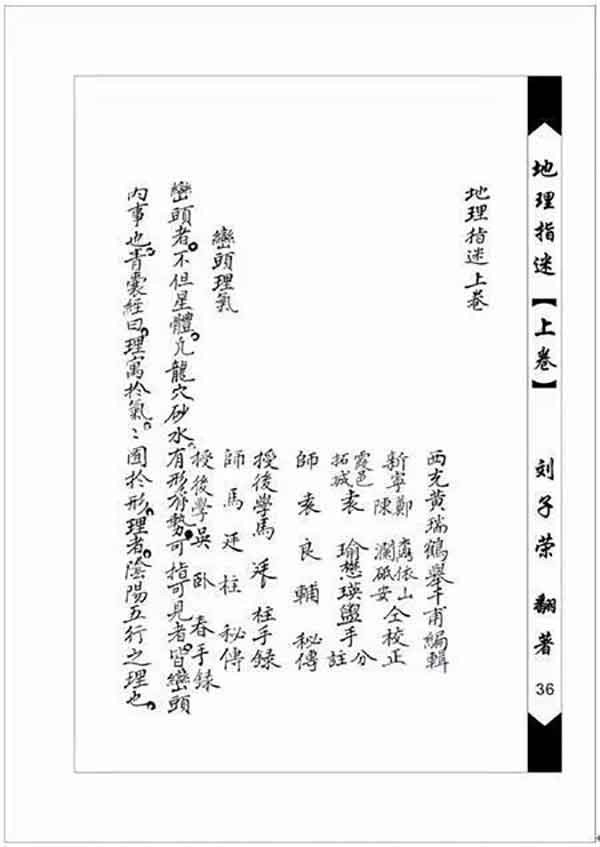 地理指迷【上卷】 刘子荣 翻著 36
地理指迷上卷
西充黄瑞鶴舉千甫編輯
新寧鄭 依山
陳瀾砥安 仝校正
霞邑
拓城袁瑜懋瑛盥手分註
師袁良輔秘傳
授後學馬廷柱手錄
師馬廷柱秘傳
授後學吳卧春手錄
巒頭理氣
巒頭者。不但星體。凡龍穴砂水。有形有勢。可指可見者。皆巒頭
内事也。青囊經曰。理寓於氣。〻囿於形。理者。陰陽五行之理也。